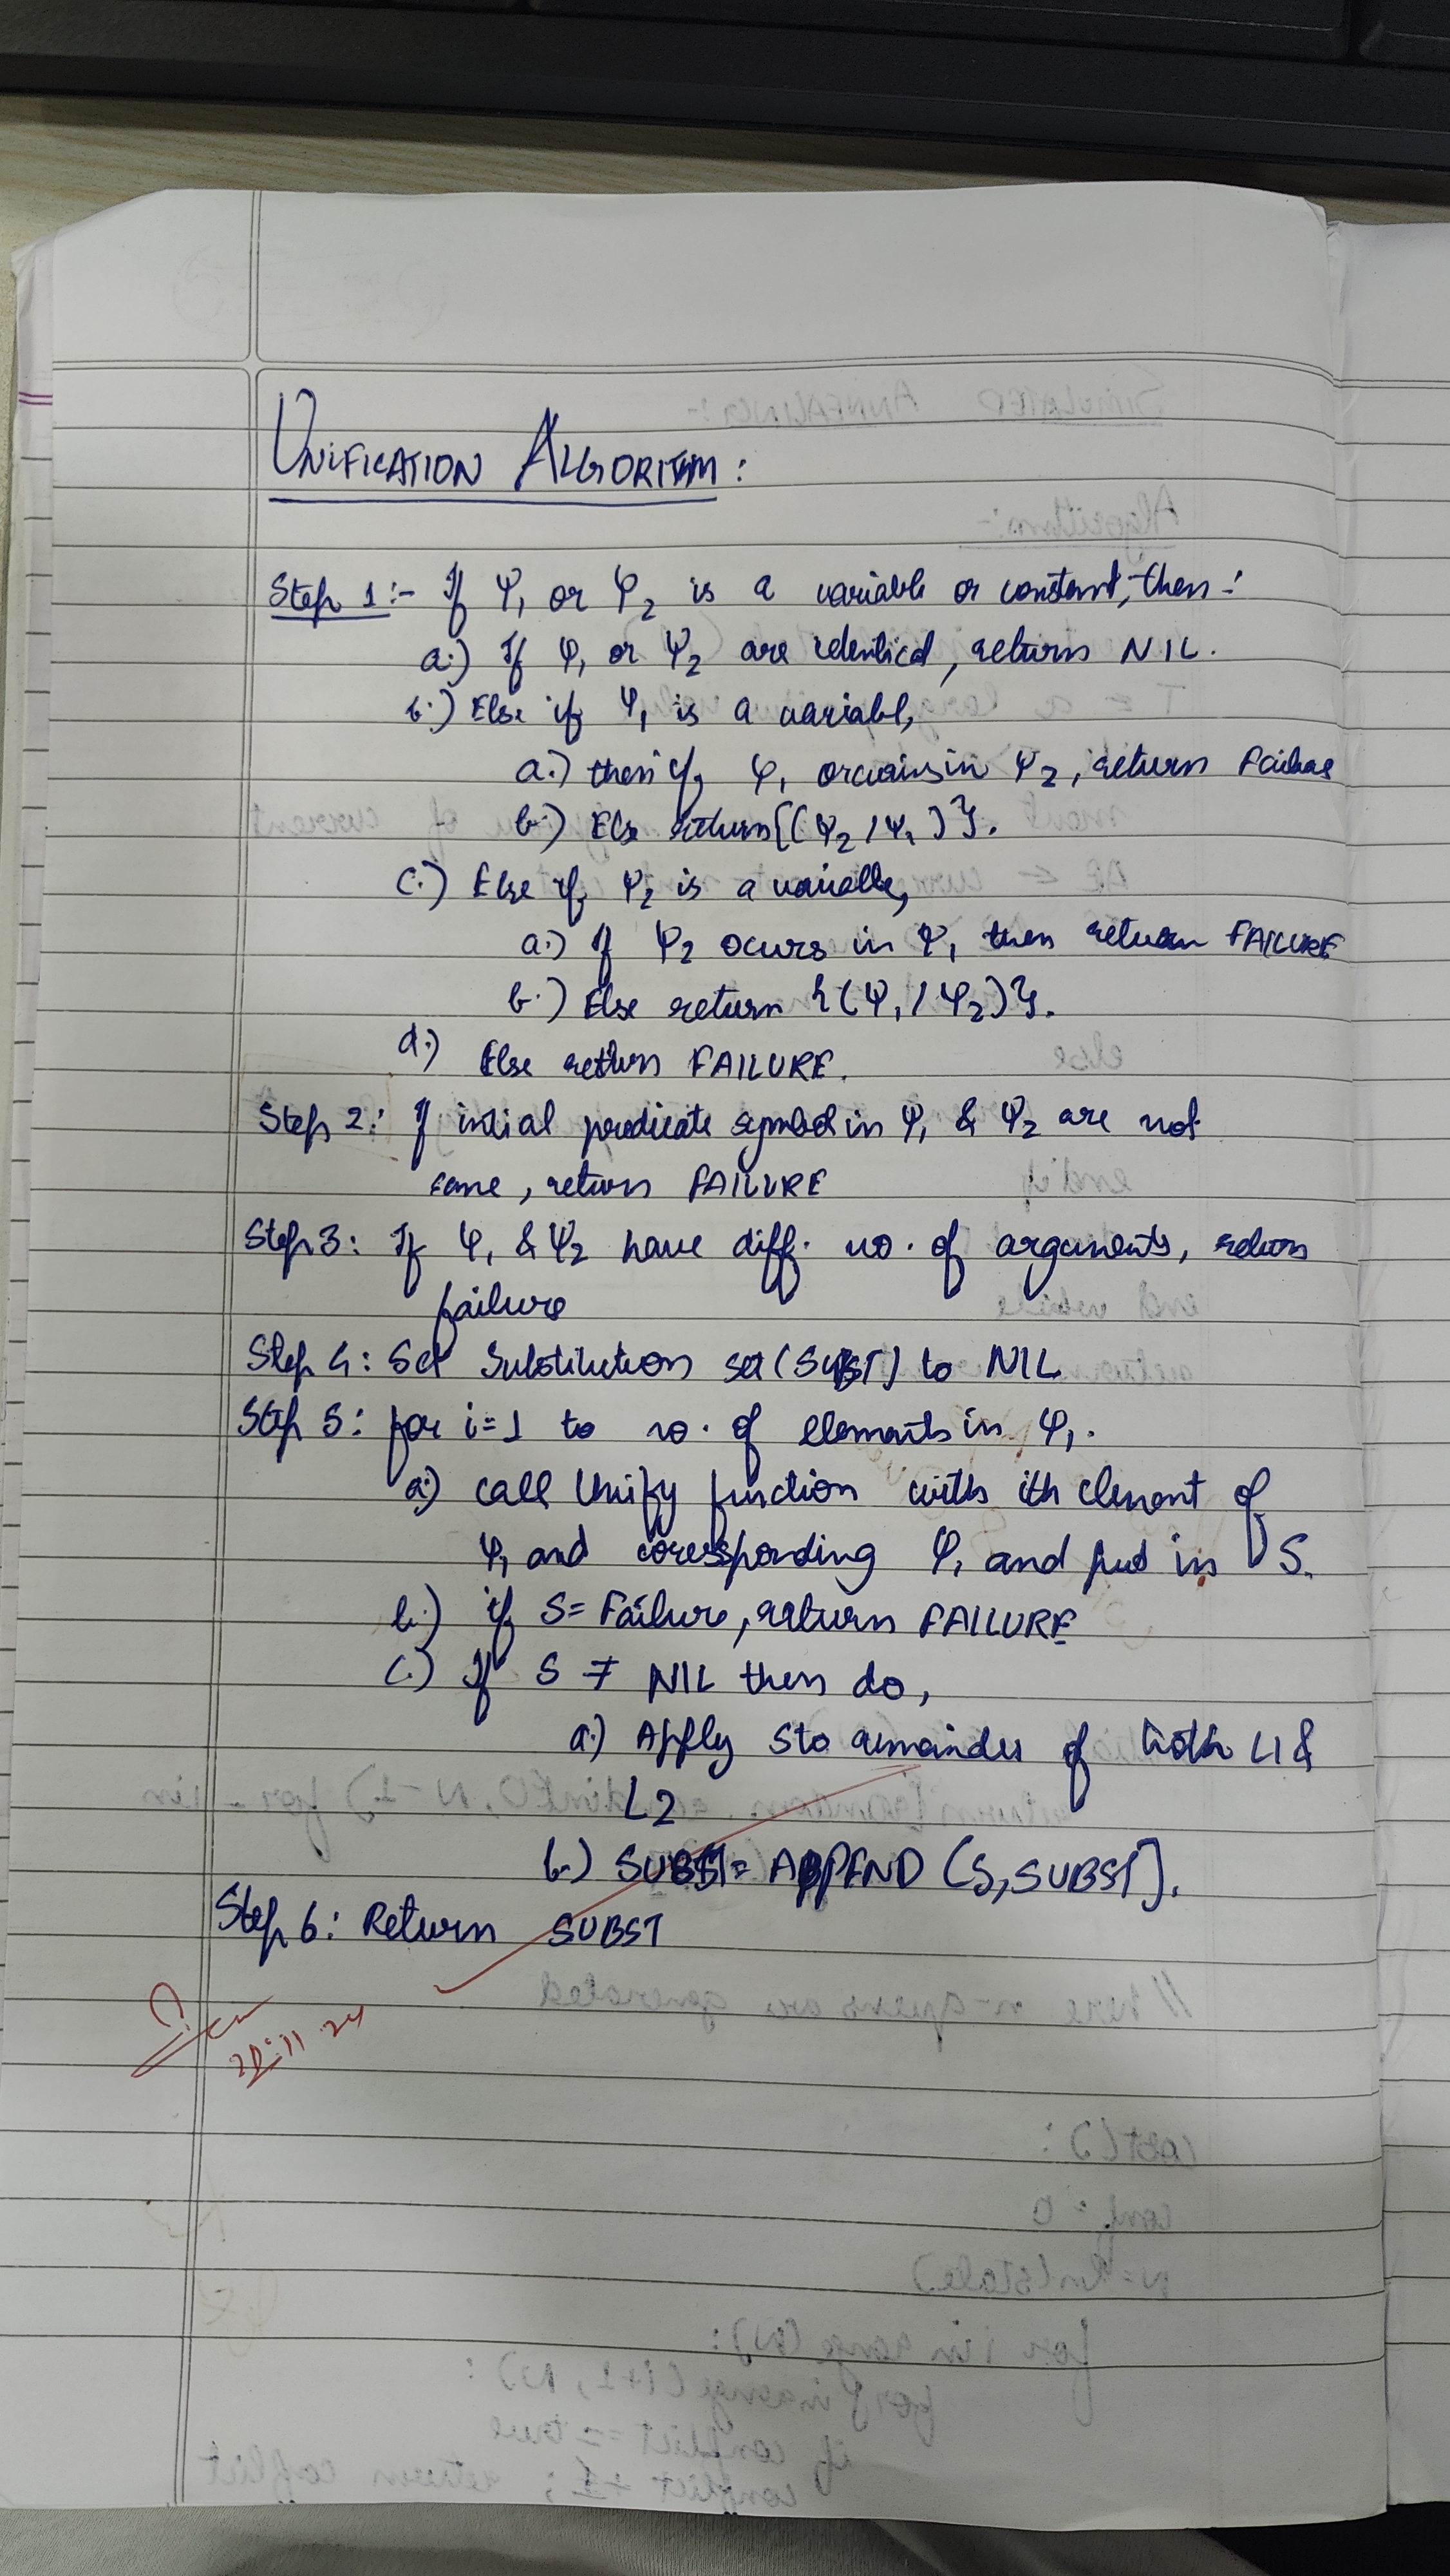 UNIFICATION ALGORITHM:
Step 1:- If Ψ1 or Ψ2 is a variable or constant, then:
a.) If Ψ1 or Ψ2 are identical, return NIL.
b.) Else if Ψ1 is a variabl,
a.) then if Ψ1 occurs in Ψ2, return Failure
b.) Else return {(Ψ2 / Ψ1)}.
c.) Else if Ψ2 is a variable,
a.) If Ψ2 ocurs in Ψ1 then return FAILURE
b.) Else return {(Ψ1 / Ψ2)}.
d.) Else return FAILURE.
Step 2: If initial predicate symbol in Ψ1 & Ψ2 are not
same, return FAILURE
Step 3: If Ψ1 & Ψ2 have diff. no. of arguments, return
failure
Step 4: Set Substitution set (SUBST) to NIL
Step 5: for i=1 to no. of elements in Ψ1.
a.) call Unify function with ith element of
Ψ1 and corresponding Ψ1 and put in S.
b.) if S = Failure, return FAILURE
c.) If S ≠ NIL then do,
a.) Apply S to remainder of both L1 &
L2
b.) SUBST = APPEND (S, SUBST).
Step 6: Return SUBST